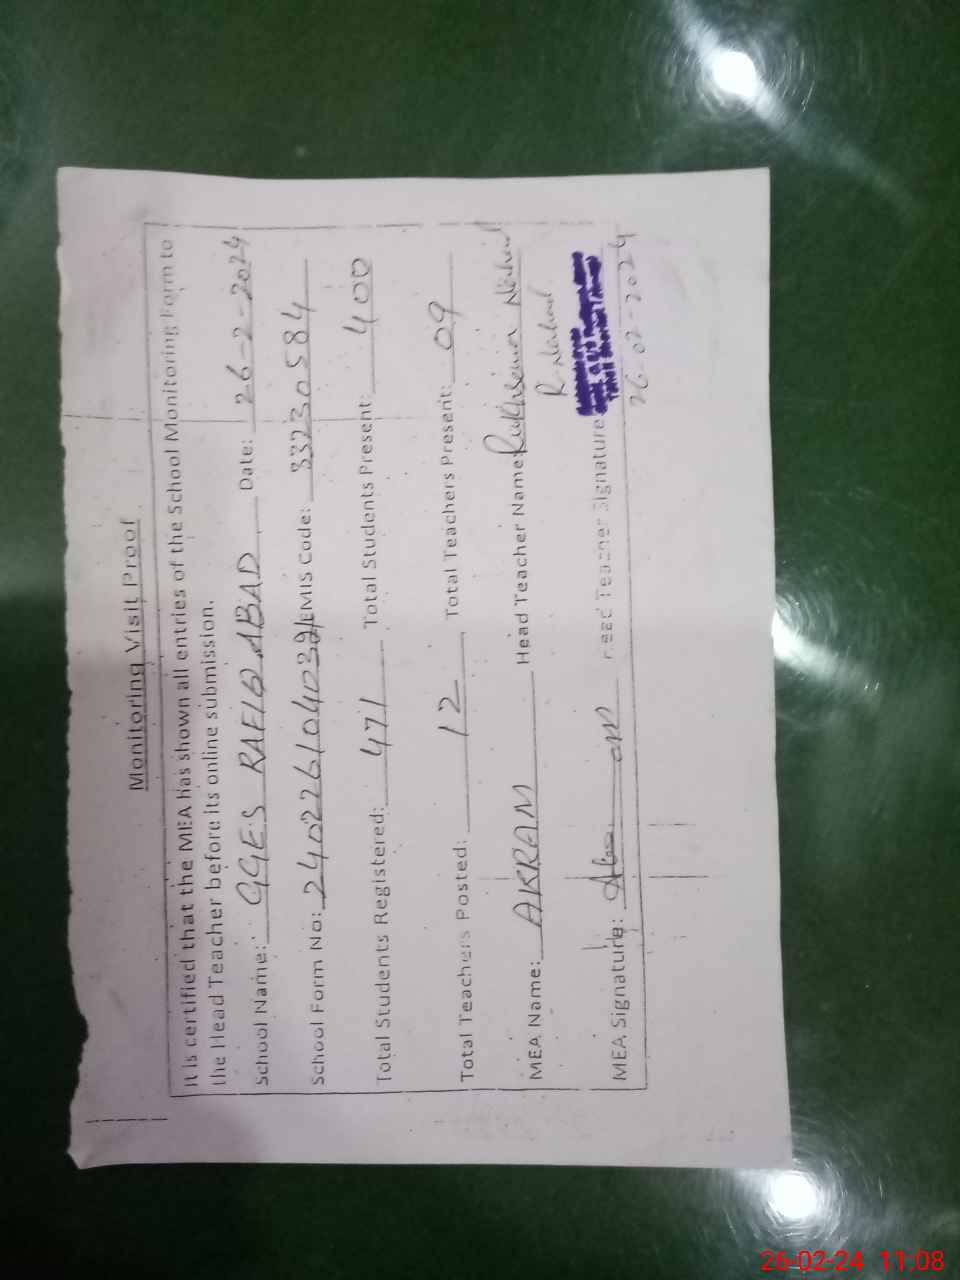 Monitoring Visit Proof
It is certified that the MEA has shown all entries of the School Monitoring Form to
the Head Teacher before its online submission.
School Name: GGES RAFIQ ABAD Date: 26-2-2024
School Form No: EMIS Code: 33230584
Total Students Registered: 471 Total Students Present: 400
Total Teachers Posted: 12 Total Teachers Present: 09
MEA Name: AKRAM Head Teacher Name: Rukhsana Naheed
R. Naheed
MEA Signature: Head Teacher Signature
26-02-2024
26-02-24 11:08